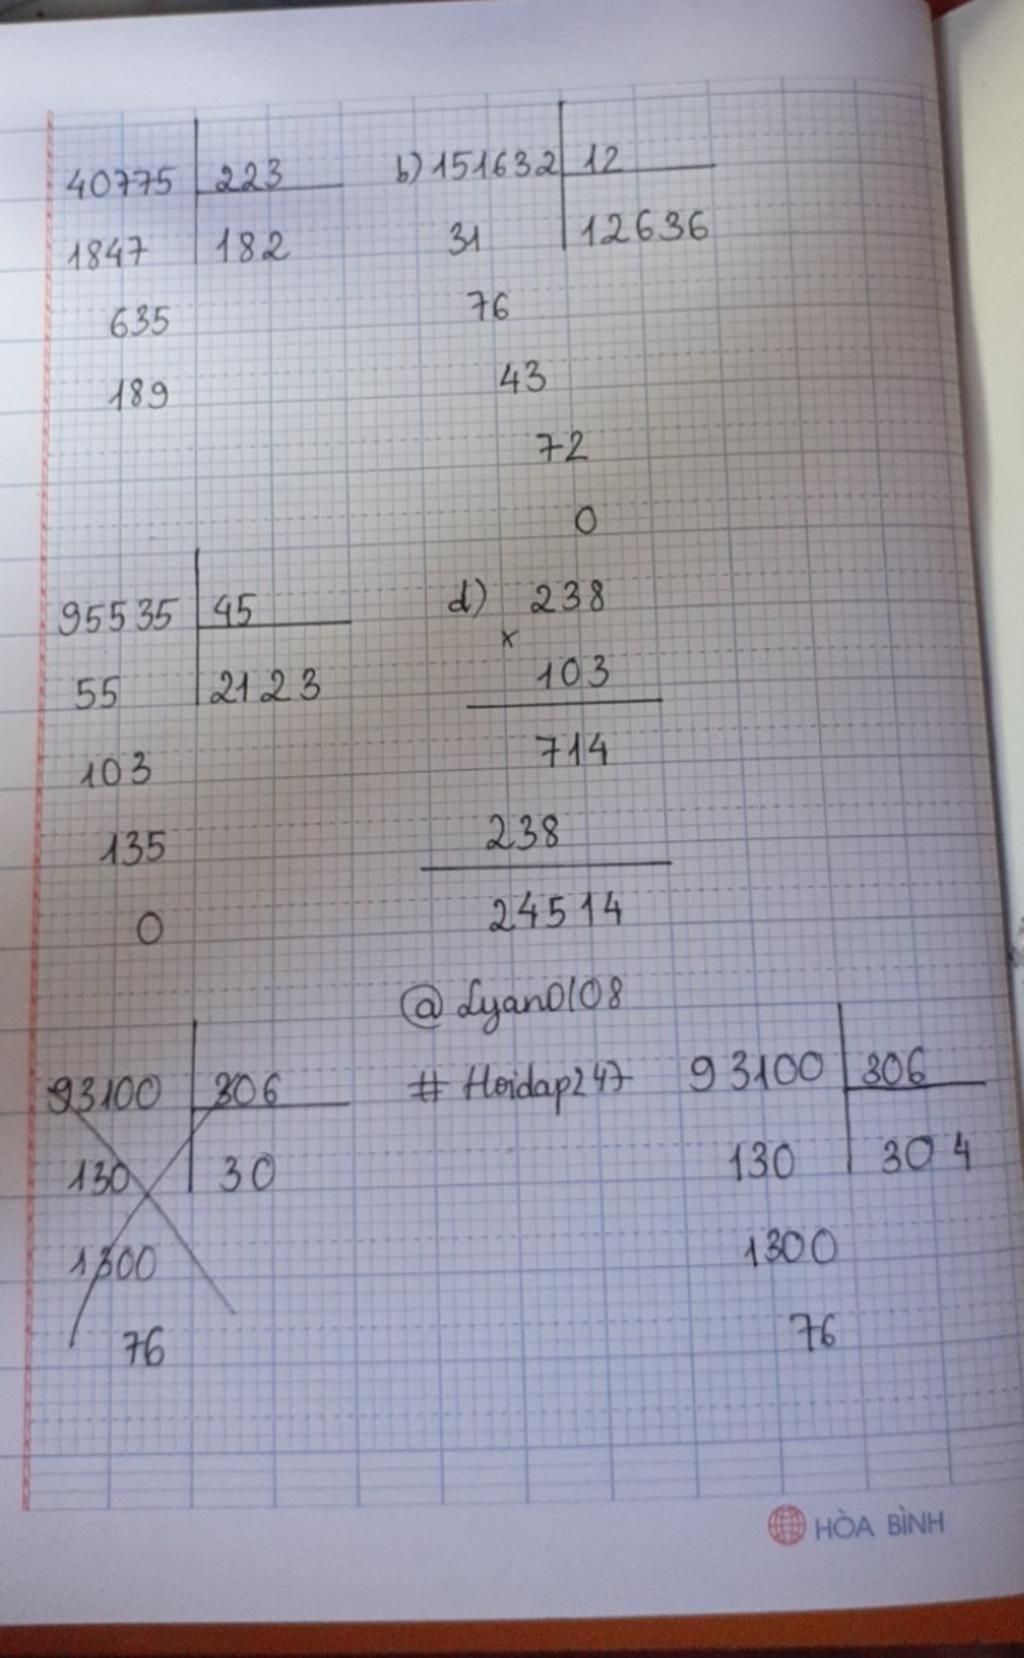 40775 223
1847 182
635
189
b) 151632 12
31 12636
76
43
72
0
95535 45
55 2123
103
135
0
d) 238
x
103
714
238
24514
@Lyan0108
#Hoidap247
93100 306
130 30
1300
76
93100 306
130 304
1300
76
HÒA BÌNH